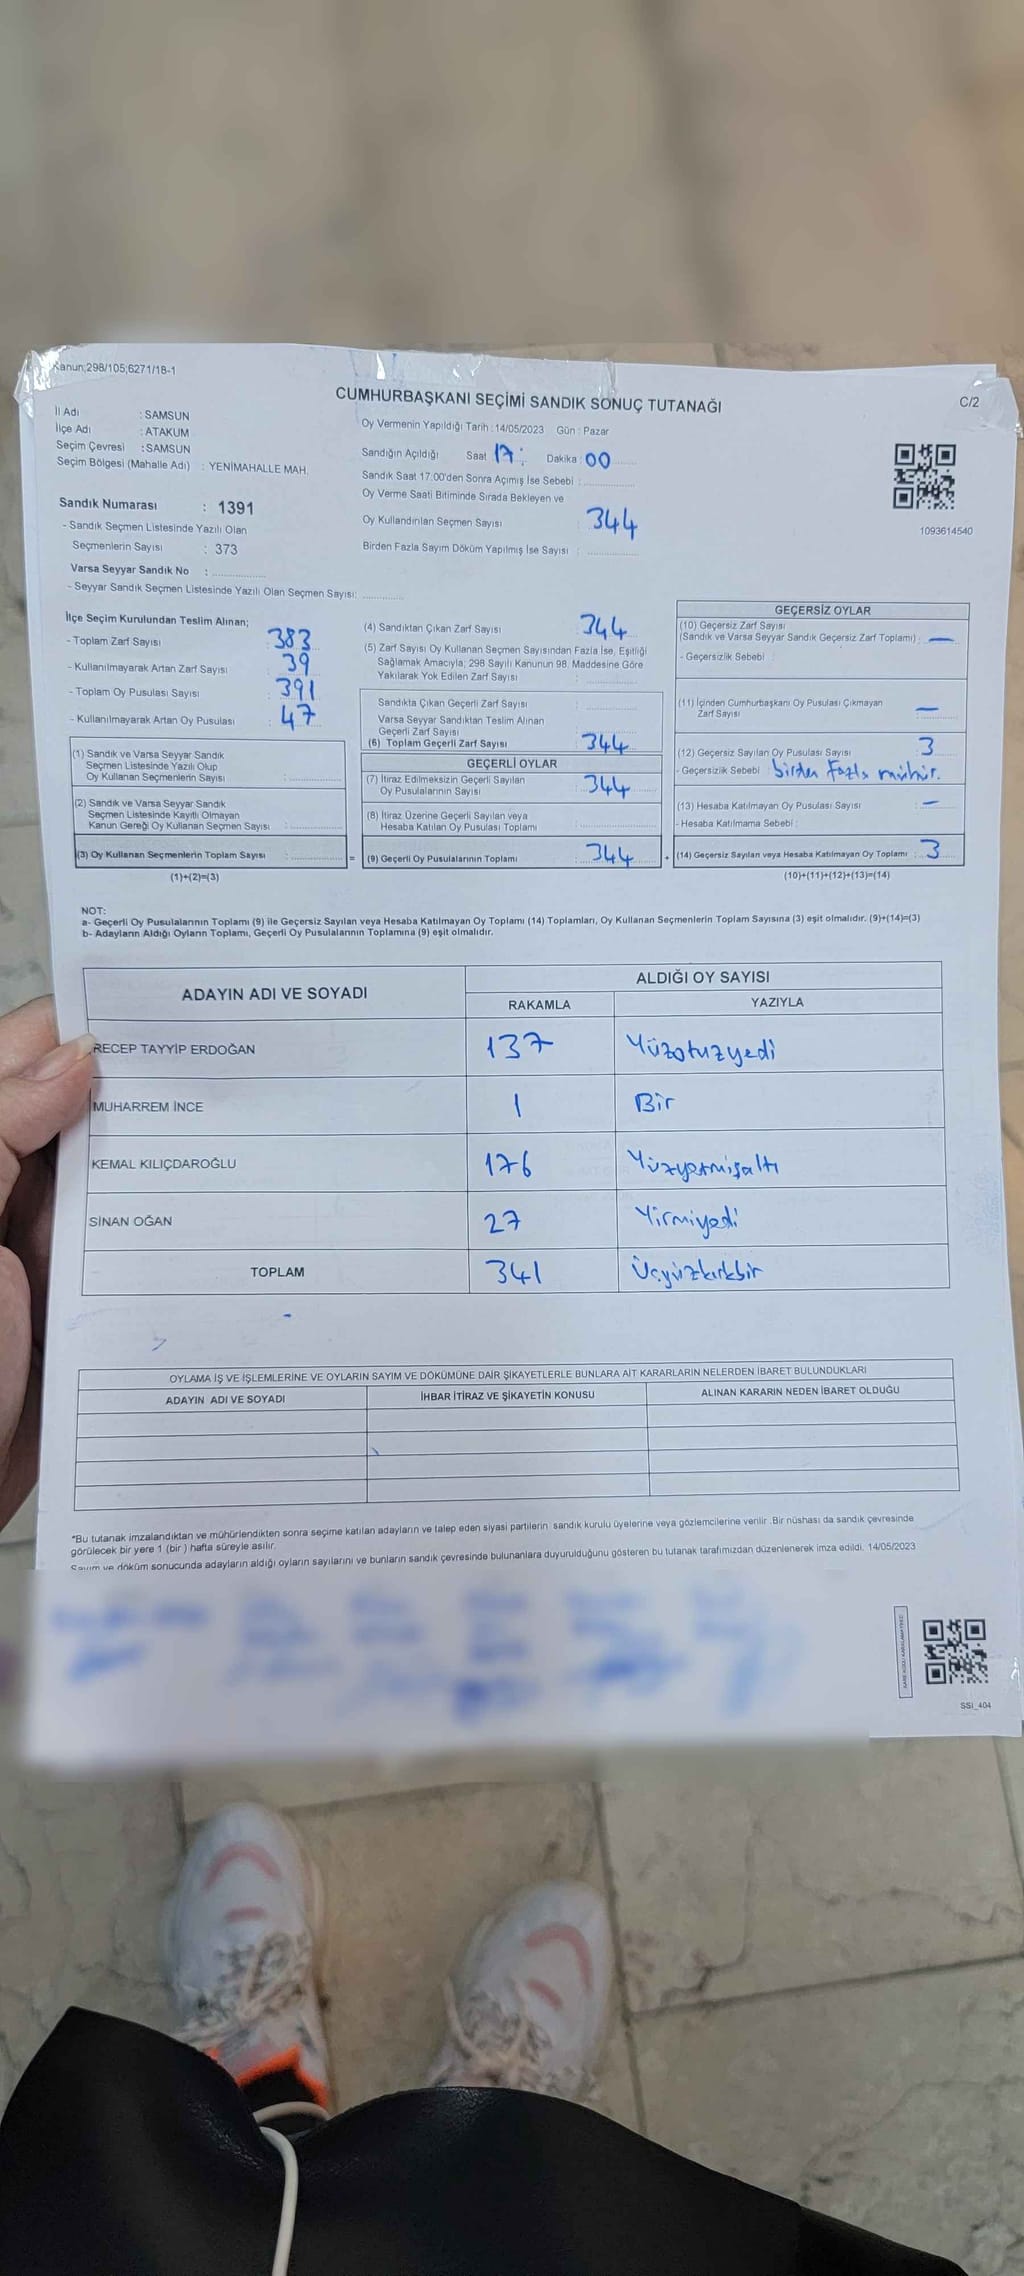 Kanun;298/105;6271/18-1
CUMHURBAŞKANI SEÇİMİ SANDIK SONUÇ TUTANAĞI
C/2
İl Adı : SAMSUN
İlçe Adı : ATAKUM
Seçim Çevresi : SAMSUN
Seçim Bölgesi (Mahalle Adı) : YENİMAHALLE MAH.
Sandık Numarası : 1391
- Sandık Seçmen Listesinde Yazılı Olan
Seçmenlerin Sayısı : 373
Varsa Seyyar Sandık No :
- Seyyar Sandık Seçmen Listesinde Yazılı Olan Seçmen Sayısı:
Oy Vermenin Yapıldığı Tarih : 14/05/2023 Gün : Pazar
Sandığın Açıldığı Saat 17: Dakika : 00
Sandık Saat 17.00'den Sonra Açımış İse Sebebi :
Oy Verme Saati Bitiminde Sırada Bekleyen ve
Oy Kullandırılan Seçmen Sayısı : 344
Birden Fazla Sayım Döküm Yapılmış İse Sayısı :
1093614540
İlçe Seçim Kurulundan Teslim Alınan;
- Toplam Zarf Sayısı : 383
- Kullanılmayarak Artan Zarf Sayısı : 39
- Toplam Oy Pusulası Sayısı : 391
- Kullanılmayarak Artan Oy Pusulası : 47
(1) Sandık ve Varsa Seyyar Sandık
Seçmen Listesinde Yazılı Olup
Oy Kullanan Seçmenlerin Sayısı :
(2) Sandık ve Varsa Seyyar Sandık
Seçmen Listesinde Kayıtlı Olmayan
Kanun Gereği Oy Kullanan Seçmen Sayısı :
(3) Oy Kullanan Seçmenlerin Toplam Sayısı :
(1)+(2)=(3)
(4) Sandıktan Çıkan Zarf Sayısı : 344
(5) Zarf Sayısı Oy Kullanan Seçmen Sayısından Fazla İse, Eşitliği
Sağlamak Amacıyla; 298 Sayılı Kanunun 98. Maddesine Göre
Yakılarak Yok Edilen Zarf Sayısı :
Sandıkta Çıkan Geçerli Zarf Sayısı :
Varsa Seyyar Sandıktan Teslim Alınan
Geçerli Zarf Sayısı :
(6) Toplam Geçerli Zarf Sayısı : 344
GEÇERLİ OYLAR
(7) İtiraz Edilmeksizin Geçerli Sayılan
Oy Pusulalarının Sayısı : 344
(8) İtiraz Üzerine Geçerli Sayılan veya
Hesaba Katılan Oy Pusulası Toplamı :
= (9) Geçerli Oy Pusulalarının Toplamı : 344 +
GEÇERSİZ OYLAR
(10) Geçersiz Zarf Sayısı
(Sandık ve Varsa Seyyar Sandık Geçersiz Zarf Toplamı) : —
- Geçersizlik Sebebi :
(11) İçinden Cumhurbaşkanı Oy Pusulası Çıkmayan
Zarf Sayısı : —
(12) Geçersiz Sayılan Oy Pusulası Sayısı : 3
- Geçersizlik Sebebi : birden fazla mühür.
(13) Hesaba Katılmayan Oy Pusulası Sayısı : —
- Hesaba Katılmama Sebebi :
(14) Geçersiz Sayılan veya Hesaba Katılmayan Oy Toplamı : 3
(10)+(11)+(12)+(13)=(14)
NOT:
a- Geçerli Oy Pusulalarının Toplamı (9) ile Geçersiz Sayılan veya Hesaba Katılmayan Oy Toplamı (14) Toplamları, Oy Kullanan Seçmenlerin Toplam Sayısına (3) eşit olmalıdır. (9)+(14)=(3)
b- Adayların Aldığı Oyların Toplamı, Geçerli Oy Pusulalarının Toplamına (9) eşit olmalıdır.
ADAYIN ADI VE SOYADI ALDIĞI OY SAYISI
RAKAMLA YAZIYLA
RECEP TAYYİP ERDOĞAN 137 Yüzotuzyedi
MUHARREM İNCE 1 Bir
KEMAL KILIÇDAROĞLU 176 Yüzyetmişaltı
SİNAN OĞAN 27 Yirmiyedi
TOPLAM 341 Üçyüzkırkbir
OYLAMA İŞ VE İŞLEMLERİNE VE OYLARIN SAYIM VE DÖKÜMÜNE DAİR ŞİKAYETLERLE BUNLARA AİT KARARLARIN NELERDEN İBARET BULUNDUKLARI
ADAYIN ADI VE SOYADI İHBAR İTİRAZ VE ŞİKAYETİN KONUSU ALINAN KARARIN NEDEN İBARET OLDUĞU
*Bu tutanak imzalandıktan ve mühürlendikten sonra seçime katılan adayların ve talep eden siyasi partilerin sandık kurulu üyelerine veya gözlemcilerine verilir .Bir nüshası da sandık çevresinde
görülecek bir yere 1 (bir ) hafta süreyle asılır.
Sayım ve döküm sonucunda adayların aldığı oyların sayılarını ve bunların sandık çevresinde bulunanlara duyurulduğunu gösteren bu tutanak tarafımızdan düzenlenerek imza edildi. 14/05/2023
SSI_404